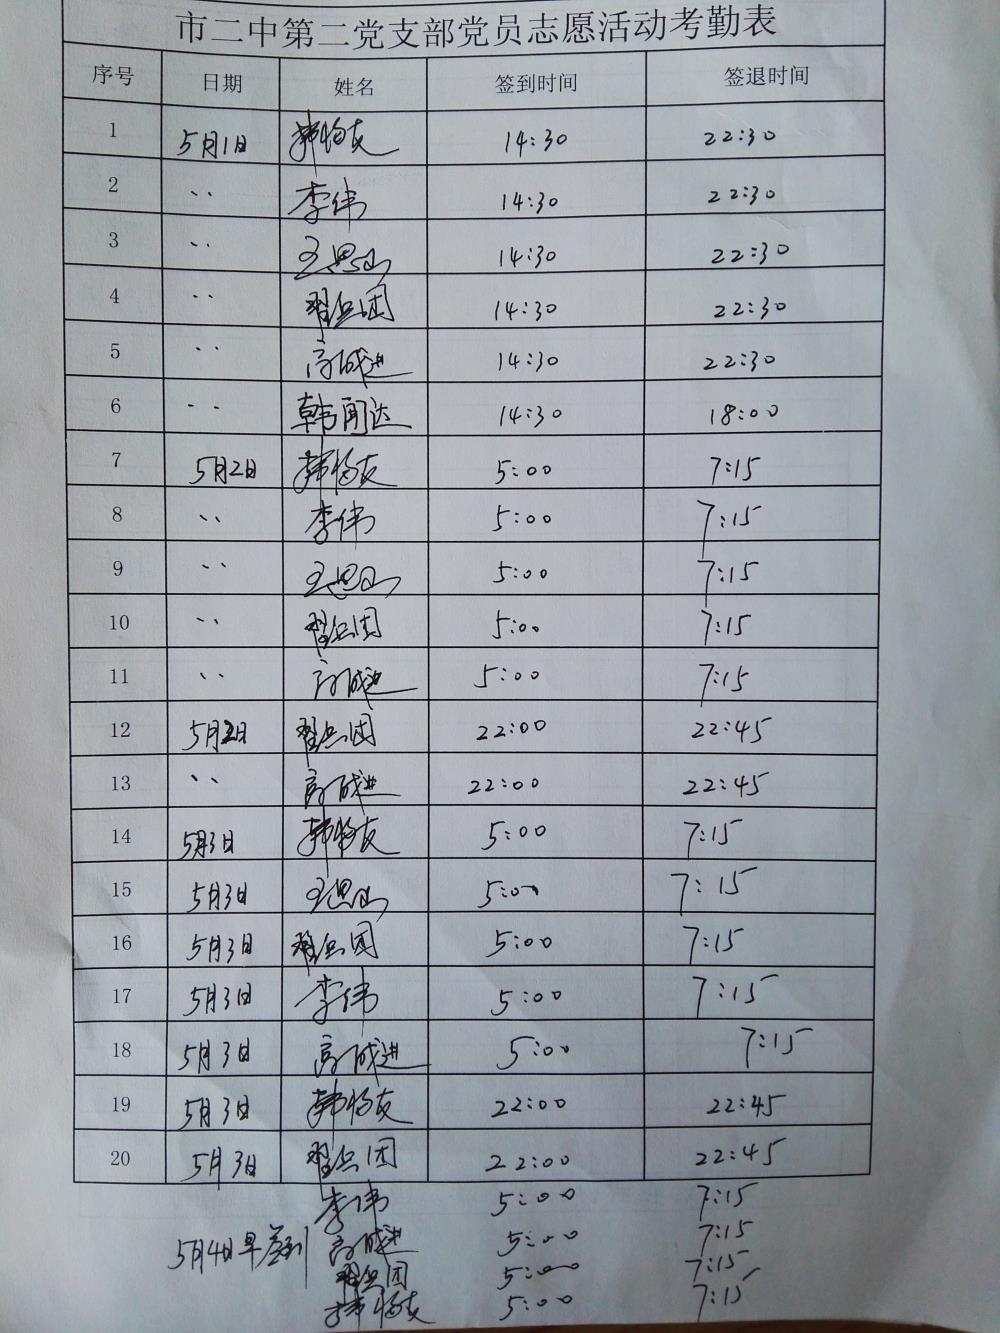 市二中第二党支部党员志愿活动考勤表
序号 日期 姓名 签到时间 签退时间
1 5月1日 韩怡友 14:30 22:30
2 〃 李伟 14:30 22:30
3 〃 王思山 14:30 22:30
4 〃 翟兵团 14:30 22:30
5 〃 高成进 14:30 22:30
6 〃 韩闻达 14:30 18:00
7 5月2日 韩怡友 5:00 7:15
8 〃 李伟 5:00 7:15
9 〃 王思山 5:00 7:15
10 〃 翟兵团 5:00 7:15
11 〃 高成进 5:00 7:15
12 5月2日 翟兵团 22:00 22:45
13 〃 高成进 22:00 22:45
14 5月3日 韩怡友 5:00 7:15
15 5月3日 王思山 5:00 7:15
16 5月3日 翟兵团 5:00 7:15
17 5月3日 李伟 5:00 7:15
18 5月3日 高成进 5:00 7:15
19 5月3日 韩怡友 22:00 22:45
20 5月3日 翟兵团 22:00 22:45
李伟 5:00 7:15
5月4日早签到 高成进 5:00 7:15
翟兵团 5:00 7:15
韩怡友 5:00 7:15